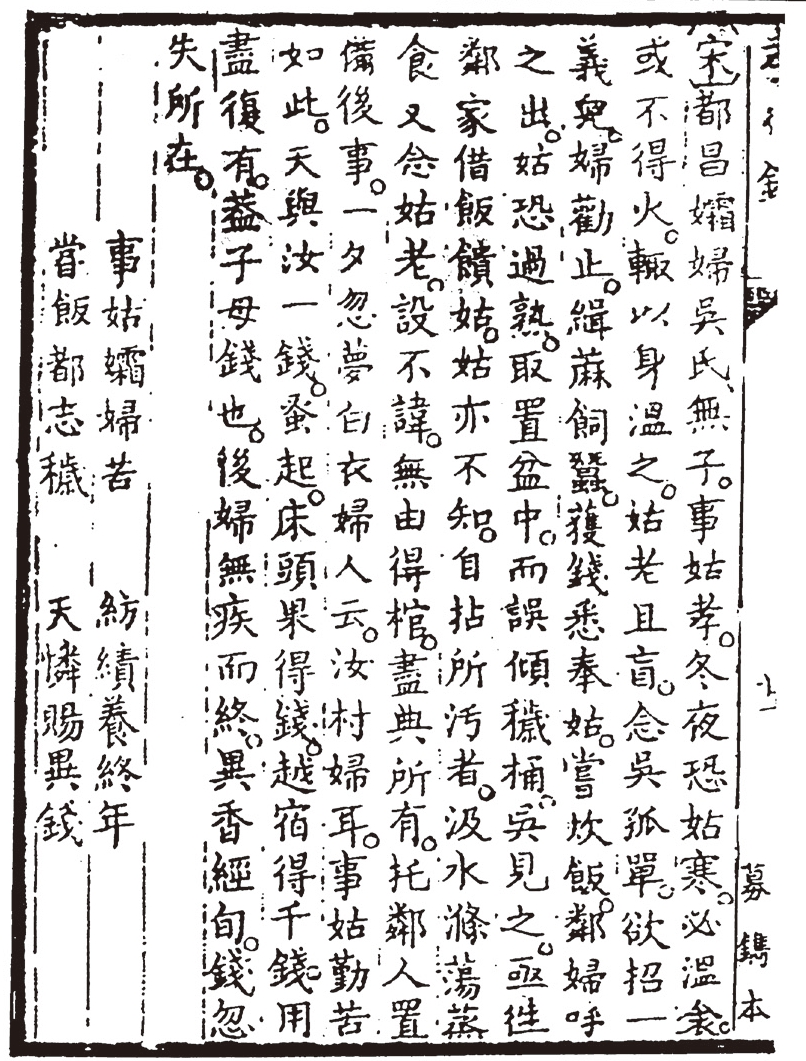 宋都昌孀婦吳氏無子。事姑孝。冬夜恐姑寒。必溫衾。
或不得火。輙以身溫之。姑老且盲。念吳孤單。欲招一
義兒。婦勸止。緝蔴飼蠶。獲錢悉奉姑。嘗炊飯。鄰婦呼
之出。姑恐過熟。取置盆中。而誤傾穢桶。吳見之。亟徃
鄰家借飯饋姑。姑亦不知。自拈所汚者。汲水滌蕩蒸
食又念姑老。設不諱。無由得棺。盡典所有。托鄰人置
備後事。一夕忽夢白衣婦人云。汝村婦耳。事姑勤苦
如此。天與汝一錢。蚤起。床頭果得錢。越宿得千錢。用
盡復有。蓋子母錢也。後婦無疾而終。異香經旬。錢忽
失所在。
事姑孀婦苦 紡績養終年
甞飯都志穢 天憐賜異錢
募鐫本